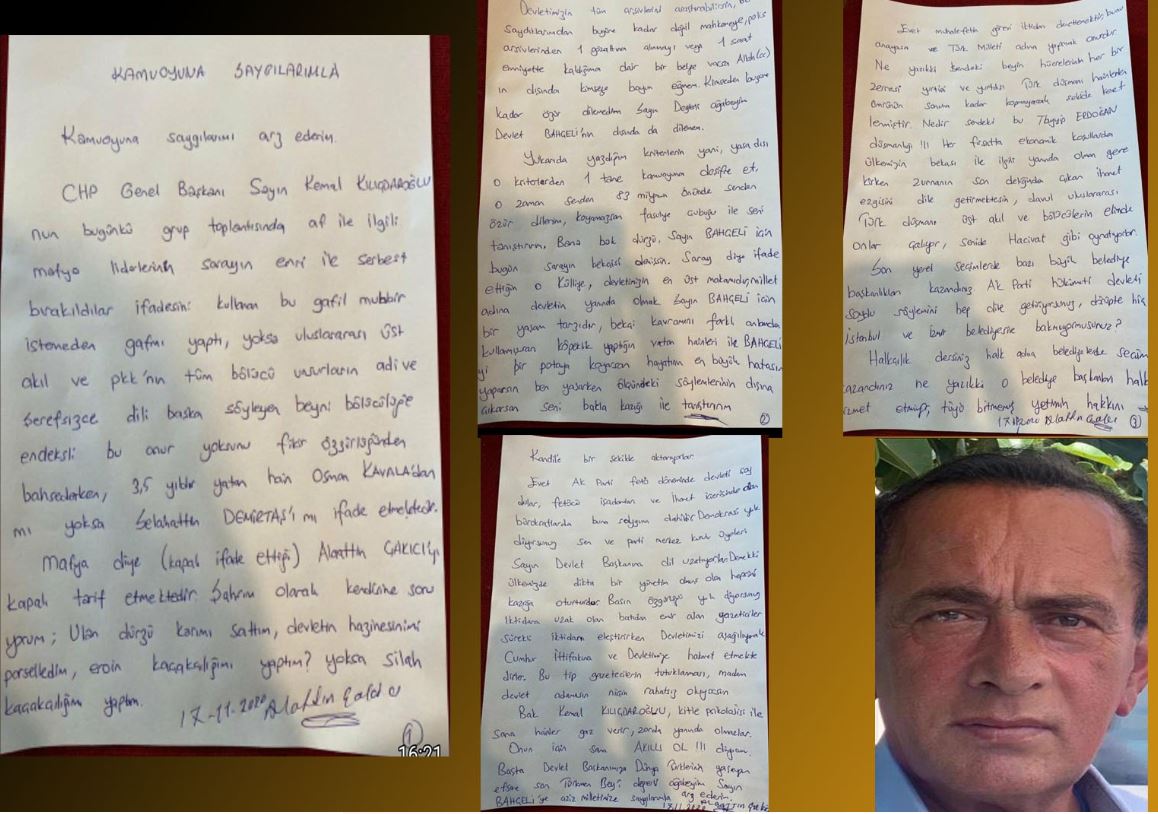 KAMUOYUNA SAYGILARIMLA
Kamuoyuna saygılarımı arz ederim.
CHP Genel Başkanı Sayın Kemal KILIÇDAROĞLU
nun bugünkü grup toplantısında af ile ilgili
mafya liderlerinin sarayın emri ile serbest
bırakıldılar ifadesini kullanan bu gafil muhbir
istemeden gafmı yaptı, yoksa uluslararası üst
akıl ve pkk'nın tüm bölücü unsurların adi ve
şerefsizce dili başka söyleyen beyni bölücülüğe
endeksli bu onur yoksunu fikir özgürlüğünden
bahsederken, 3,5 yıldır yatan hain Osman KAVALA'dan
mı yoksa Selahattin DEMİRTAŞ'ı mı ifade etmektedir.
Mafya diye (kapalı ifade ettiği) Alaattin ÇAKICI'yı
kapalı tarif etmektedir. Şahsım olarak kendisine soru
yorum; Ulan dürzü karımı sattım, devletin hazinesinimi
parselledim, eroin kaçakçılığımı yaptım? yoksa silah
kaçakçılığımı yaptım.
17-11-2020 Alaattin Çakıcı
1
16:21
Devletimizin tüm arşivlerini araştırabilirsin, bu
saydıklarımdan bugüne kadar değil mahkemeye, polis
arşivlerinden 1 gözaltına alınmayı veya 1 saat
emniyette kaldığıma dair bir belge varsa Allah (cc)
ın dışında kimseye boyun eğmem. Kimseden bugüne
kadar özür dilemedim Sayın Değerli ağabeyim
Devlet BAHÇELİ'nin dışında da dilemem.
Yukarıda yazdığım kriterlerin yani, yasa dışı
o kriterlerden 1 tane kamuoyuna deşifre et,
o zaman senden 83 milyon önünde senden
özür dilerim, koyamazsan fasulye çubuğu ile seni
tanıştırırım, Bana bak dürzü, Sayın BAHÇELİ için
bugün sarayın bekçisi demişsin. Saray diye ifade
ettiğin o Külliye, devletimizin en üst makamıdır, millet
adına devletin yanında olmak Sayın BAHÇELİ için
bir yaşam tarzıdır, bekçi kavramını farklı anlamda
kullanıyorsan köpeklik yaptığın vatan hainleri ile BAHÇELİ
yi bir potaya koyarsan hayatının en büyük hatasını
yaparsın ben yazarken ölçündeki söylemlerinin dışına
çıkarsan seni bakla kazığı ile tanıştırırım
2
Evet muhalefetin görevi iktidarı denetlemektir, bunu
anayasa ve Türk Milleti adına yapmak onurdur.
Ne yazıkki sendeki beyin hücrelerinin her bir
zerresi yurtiçi ve yurtdışı Türk düşmanı hainlerden
ömrünün sonuna kadar kopmayacak şekilde kenet
lenmiştir. Nedir sendeki bu Tayyip ERDOĞAN
düşmanlığı !!! Her fırsatta ekonomik koşullarda
ülkemizin bekası ile ilgili yanında olman gere
kirken zurnanın son deliğinden çıkan ihanet
ezgisini dile getirmektesin, davul uluslararası
Türk düşmanı üst akıl ve bölücülerin elinde
onlar çalıyor, senide Hacivat gibi oynatıyorlar.
Son yerel seçimlerde bazı büyük belediye
başkanlıkları kazandınız Ak Parti hükümeti devleti
soydu söylemini hep dile getiriyorsunuz, dönüpte hiç
İstanbul ve İzmir belediyesine bakmıyormusunuz?
Halkçılık dersiniz halk adına belediyelerde seçim
kazandınız ne yazıkki o belediye başkanları halka
hizmet etmeyip, tüyü bitmemiş yetimin hakkını
17.11.2020 Alaattin Çakıcı 3
Kandile bir şekilde aktarıyorlar.
Evet Ak Parti fetö döneminde devleti soy
dular, fetöcü işadamları ve ihanet içerisinde olan
bürokratlarda buna dahildir Demokrasi yok
diyorsunuz sen ve parti merkez üyeleri
Sayın Devlet Başkanına dil uzatıyorlar. Demekki
ülkemizde dikta bir yönetim olmuş olsa hepsini
kazığa oturturdu. Basın özgürlüğü yok diyorsunuz
iktidara uzak olan batıdan emir alan gazeteciler
sürekli iktidarı eleştirirken Devletimizi aşağılayarak
Cumhur İttifakına ve Devletimize hakaret etmekte
dirler. Bu tip gazetecilerin tutuklanması, madem
devlet adamısın niçin rahatsız oluyorsun
Bak Kemal KILIÇDAROĞLU, kitle psikolojisi ile
sana hainler gaz verir, zorda yanında olmazlar.
Onun için sana AKILLI OL !!! diyorum.
Başta Devlet Başkanımıza Dünya Türklerinin yaşayan
efsane son Türkmen Beyi değerli ağabeyim Sayın
BAHÇELİ'ye aziz milletimize saygılarımla arz ederim.
17.11.2020